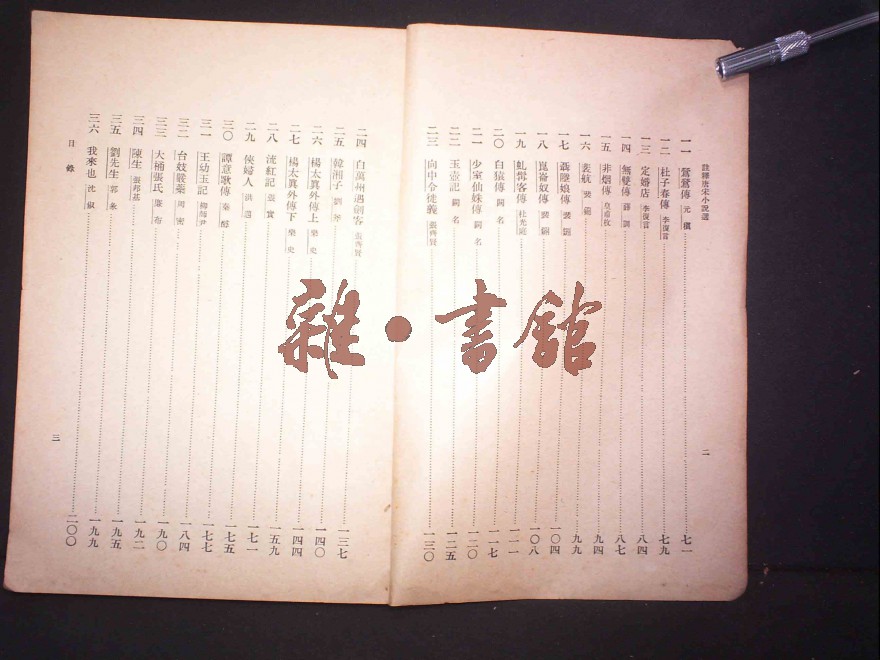 註釋唐宋小說選
一一 鶯鶯傳 元稹 七一
一二 杜子春傳 李復言 七九
一三 定婚店 李復言 八四
一四 無雙傳 薛調 八七
一五 非烟傳 皇甫枚 九四
一六 裴航 裴鉶 九九
一七 聶隱娘傳 裴鉶 一〇四
一八 崑崙奴傳 裴鉶 一〇八
一九 虬髯客傳 杜光庭 一一一
二〇 白猿傳 闕名 一一七
二一 少室仙姝傳 闕名 一二〇
二二 玉壺記 闕名 一二五
二三 向中令徙義 張齊賢 一三〇
二
二四 白萬州遇劍客 張齊賢 一三七
二五 韓湘子 劉斧 一四〇
二六 楊太眞外傳上 樂史 一四四
二七 楊太眞外傳下 樂史
二八 流紅記 張實 一五九
二九 俠婦人 洪邁 一七一
三〇 譚意歌傳 秦醇 一七五
三一 王幼玉記 柳師尹 一七七
三二 台妓嚴蘂 周密 一八四
三三 大桶張氏 廉布 一九〇
三四 陳生 張邦基 一九二
三五 劉先生 郭彖 一九五
三六 我來也 沈俶 一九九
二〇〇
目錄
三
雜·書館